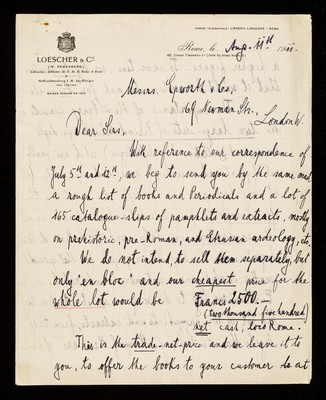 LOESCHER & Co
(W. REGENBERG)
Libraires - Editeurs de S. M. le Reine d'Italie
Hofbuchhandlung I. M. der Königin
MAISON FONDÉE EN 1870
LIBRERIA LOESCHER - ROMA
Rome, le Aug. 11th 1911.
Messrs. Epworth & Co,
69 Newman Str.,
London W.
Dear Sirs,
With reference to our correspondence of
July 5th and 12th, we beg to send you by the same mail
a rough list of books and Periodicals and a lot of
165 catalogue-slips of pamphlets and extracts, mostly
on prehistoric, pre-Roman, and Etrusian ardeology, etc.
We do not intend to sell them separately, but
only "en bloc" and our cheapest price for the
whole lot would be Francs 2500.—
(two thousand five hundred)
net cash, loco Rome.
This is the trade-net-price and we leave it to
you, to offer the books to your customer to at